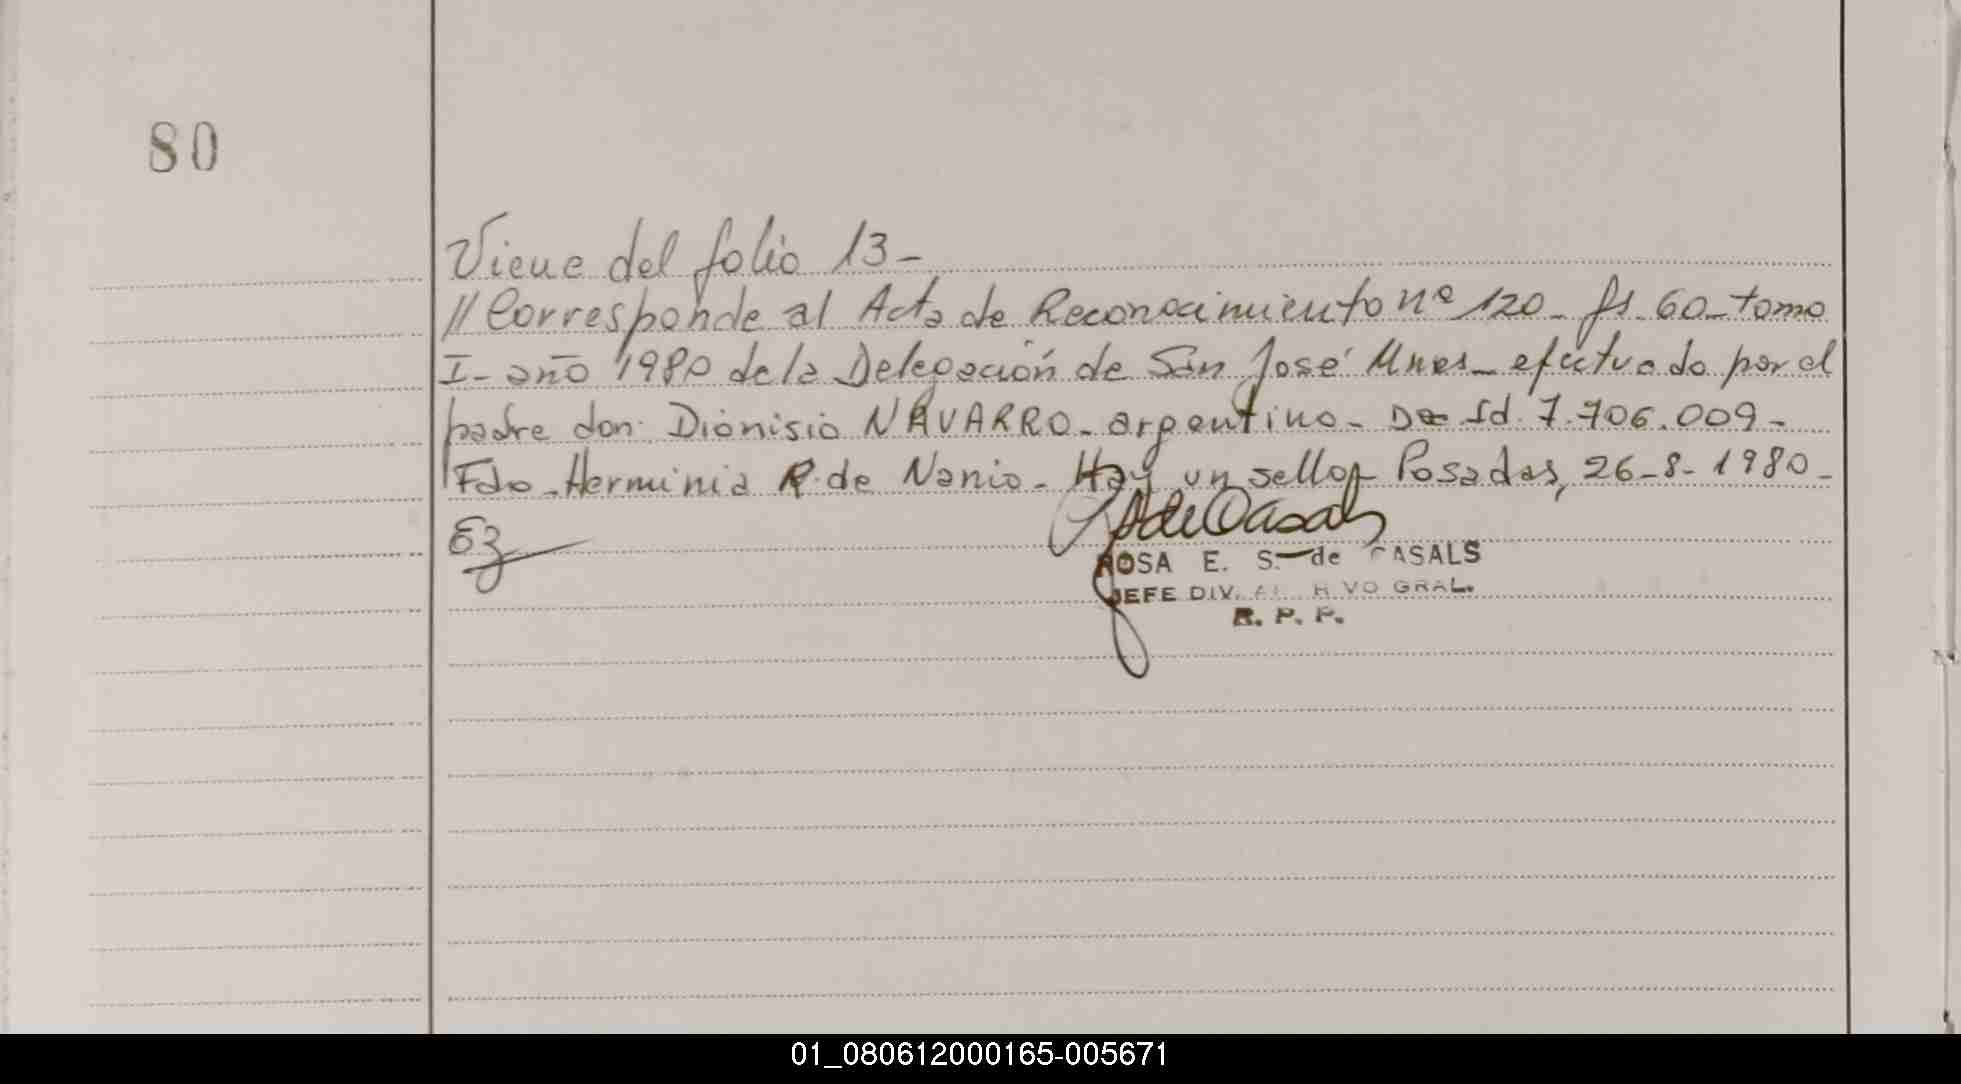 80
Viene del folio 13-
// Corresponde al Acta de Reconocimiento nº 120- fs. 60- tomo
I- año 1980 de la Delegación de San José Mnes- efectuado por el
padre don Dionisio NAVARRO- argentino- Id. 7.706.009-
Fdo- Herminia R. de Nanio- Hay un sello Posadas, 26-8-1980-
ROSA E. S. de CASALS
JEFE DIV. GRAL.
R. P. P.
01_080612000165-005671